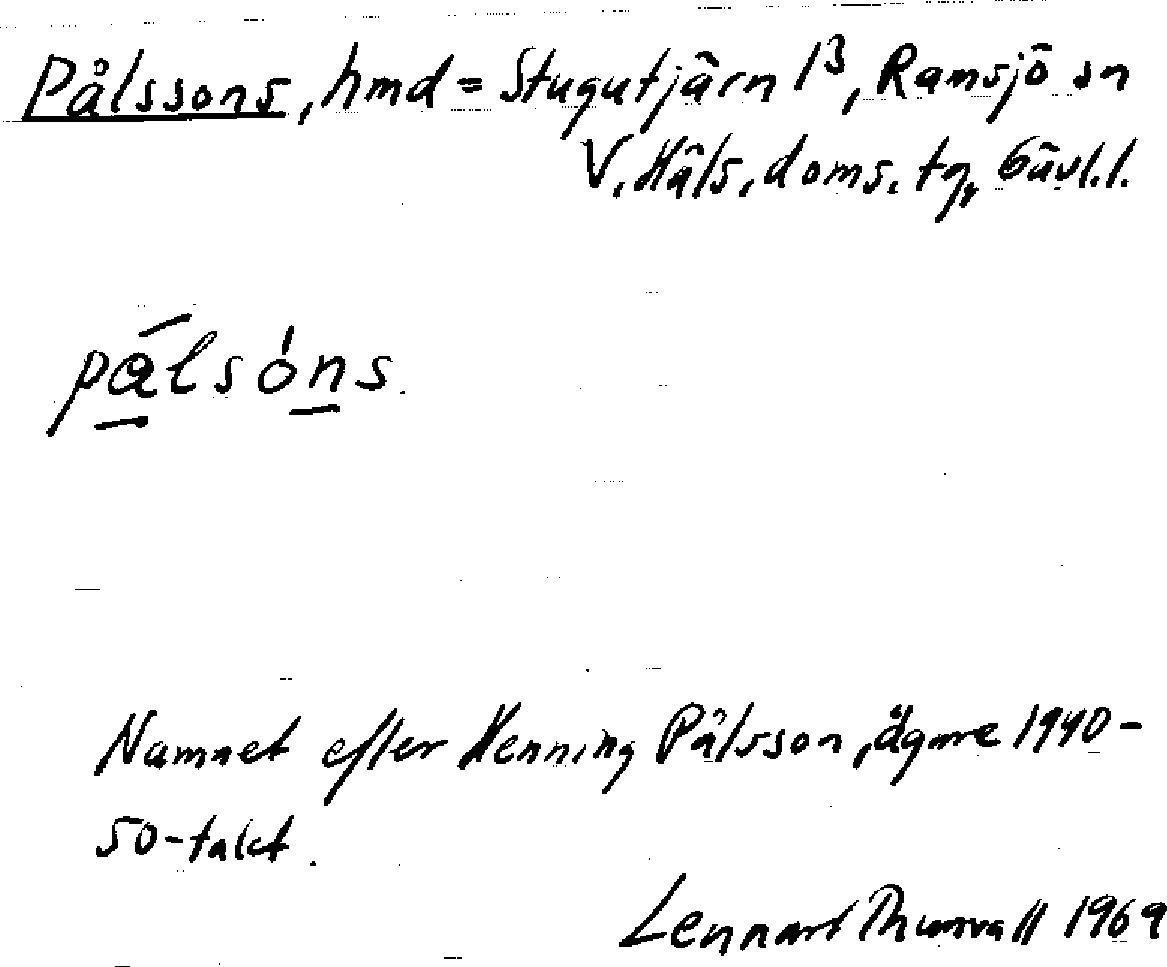 Pålssons, hmd = Stugutjärn 1³, Ramsjö sn
V. Häls. doms. tg, Gävl.l.
pålsóns.
Namnet efter Henning Pålsson, ägare 1940-
50-talet.
Lennart Thunvall 1969